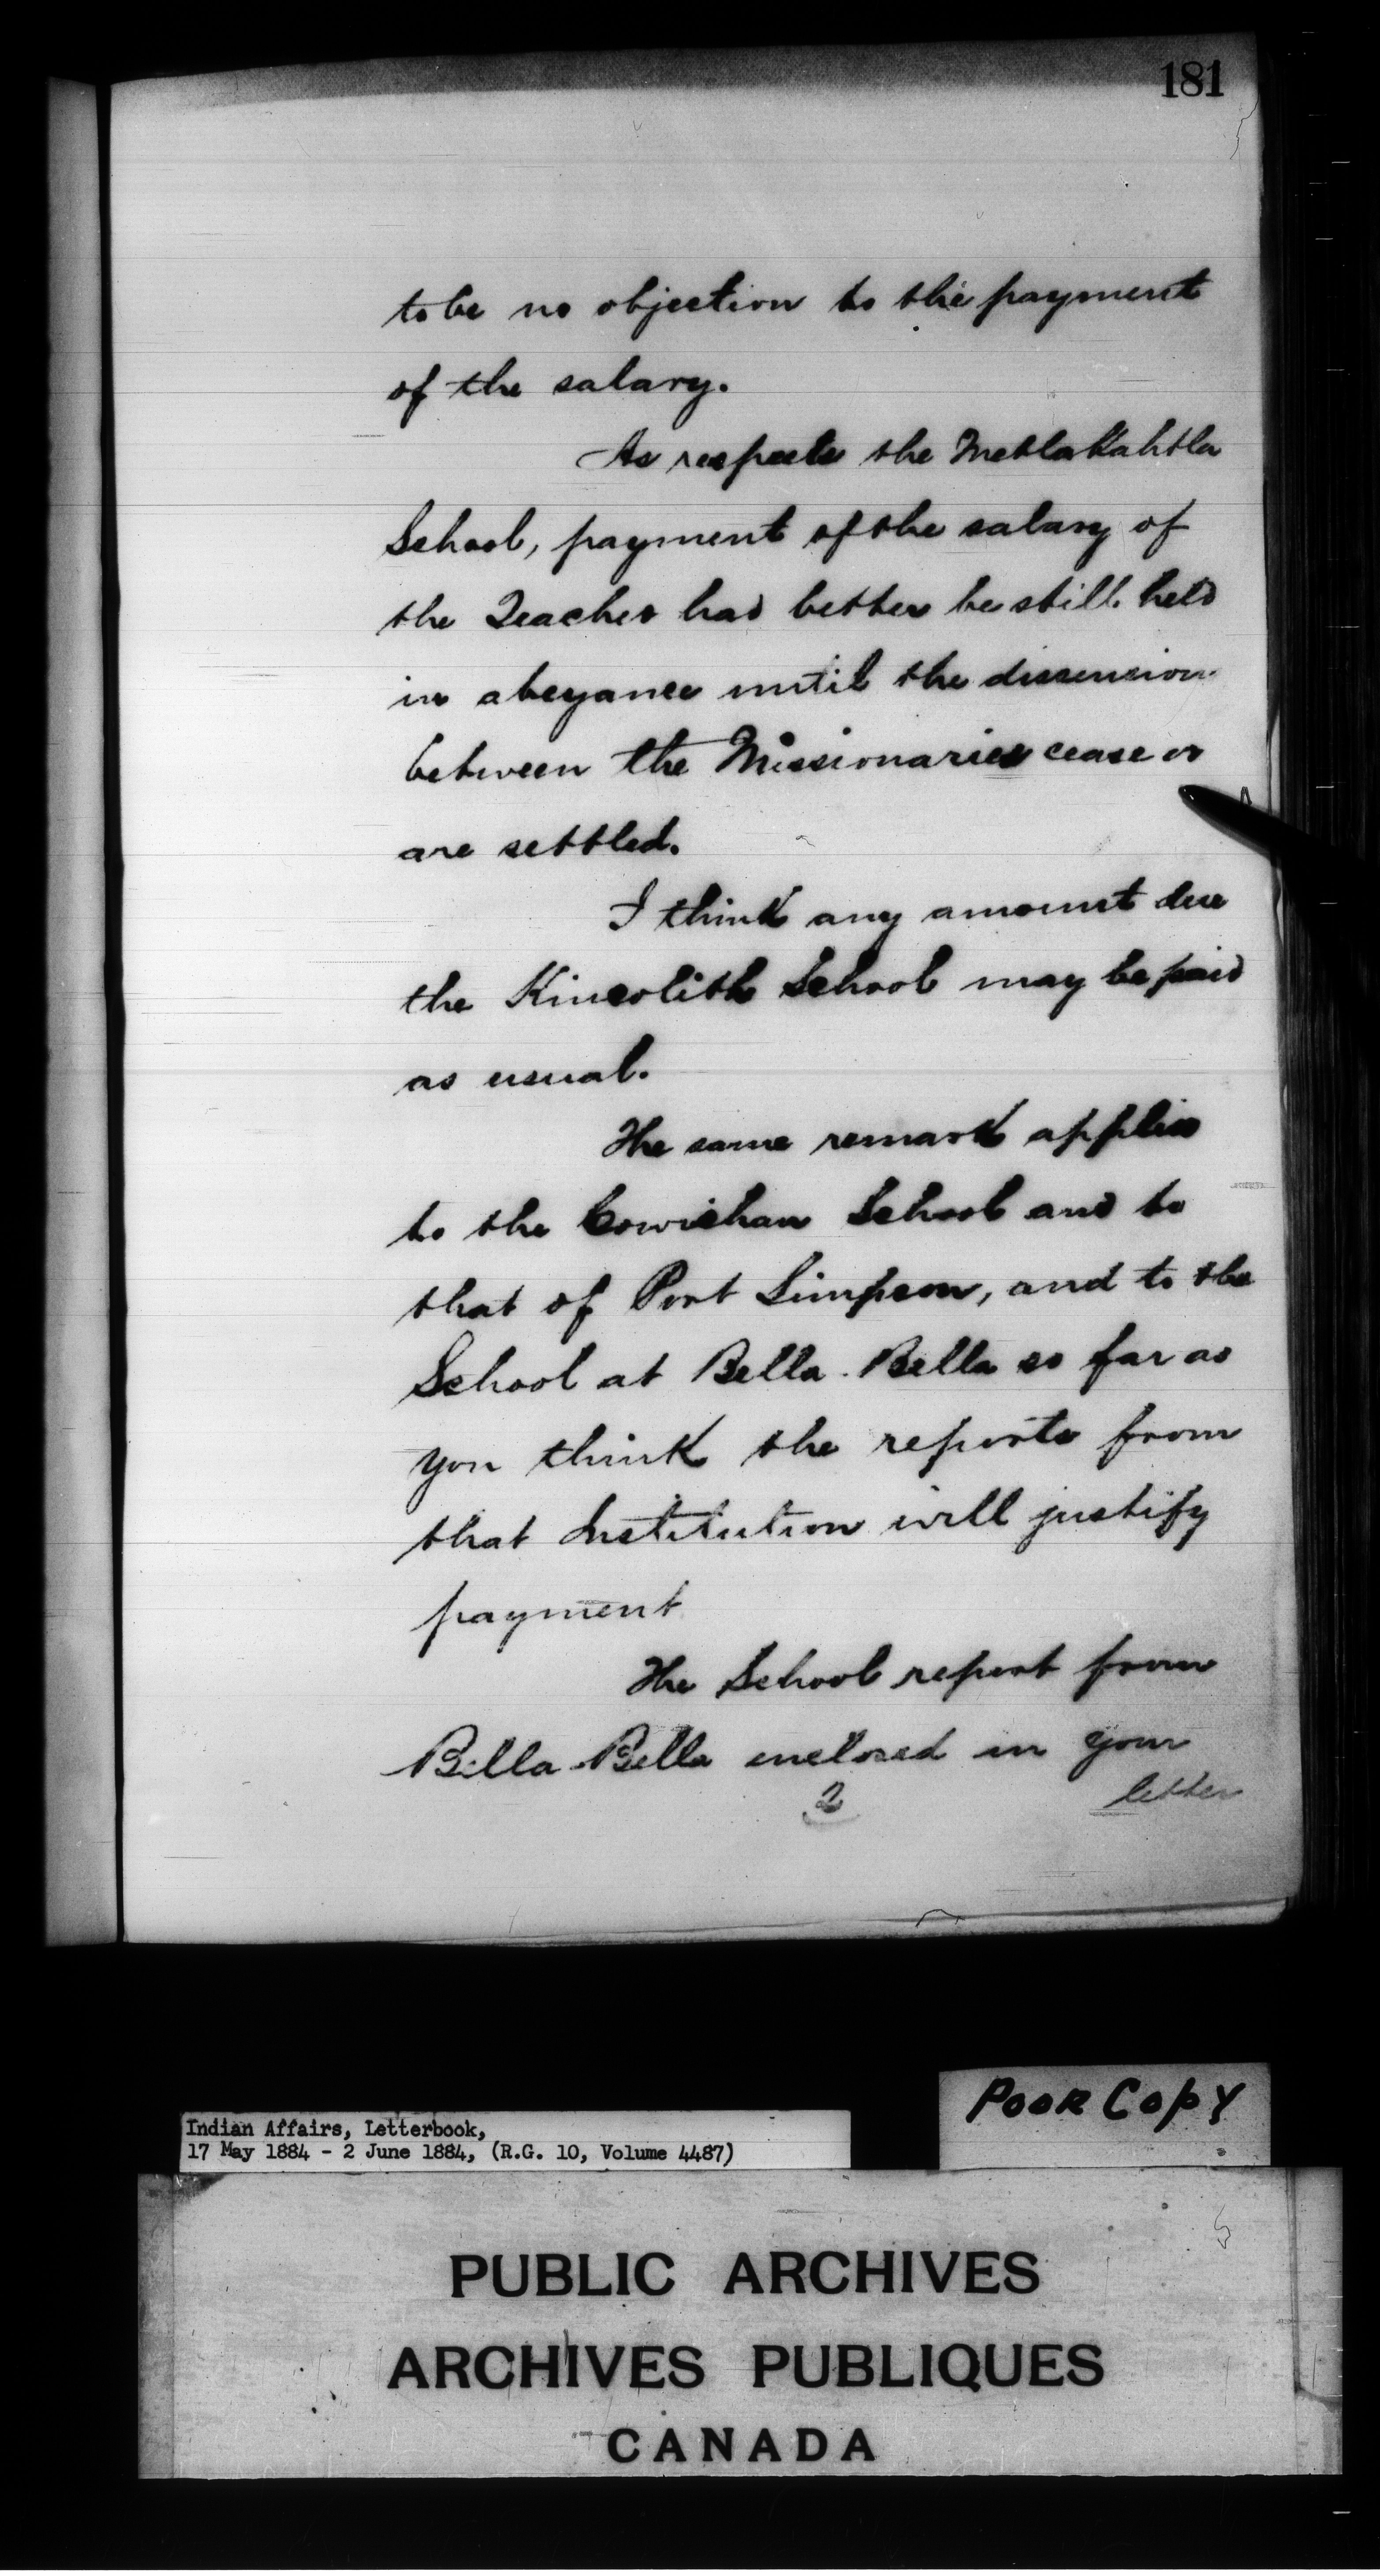 181
to be no objection to the payment
of the salary.
As respects the Metlakahtla
School, payment of the salary of
the Teacher had better be still held
in abeyance until the dissension
between the Missionaries cease or
are settled.
I think any amount due
the Kincolith School may be paid
as usual.
The same remark applies
to the Cowichan School and to
that of Port Simpson, and to the
School at Bella-Bella so far as
you think the reports from
that Institution will justify
payment
The School report from
Bella-Bella enclosed in your
2 letter
POOR COPY
Indian Affairs, Letterbook,
17 May 1884 - 2 June 1884, (R.G. 10, Volume 4487)
PUBLIC ARCHIVES
ARCHIVES PUBLIQUES
CANADA